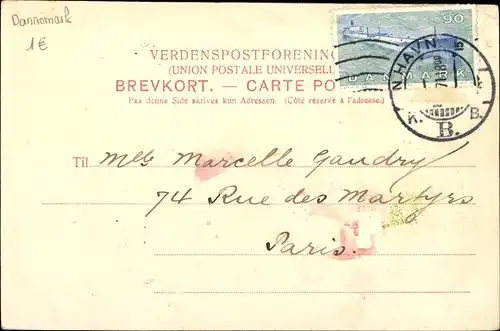 Dannemark
1€
90
DANMARK
N HAVN
K. B.
B.
VERDENSPOSTFORENIN
(UNION POSTALE UNIVERSELL
BREVKORT. — CARTE PO
Paa denne Side skrives kun Adressen. (Côté réservé à l'adresse.)
Til Mlle Marcelle Gaudry
74 Rue des Martyrs
Paris.